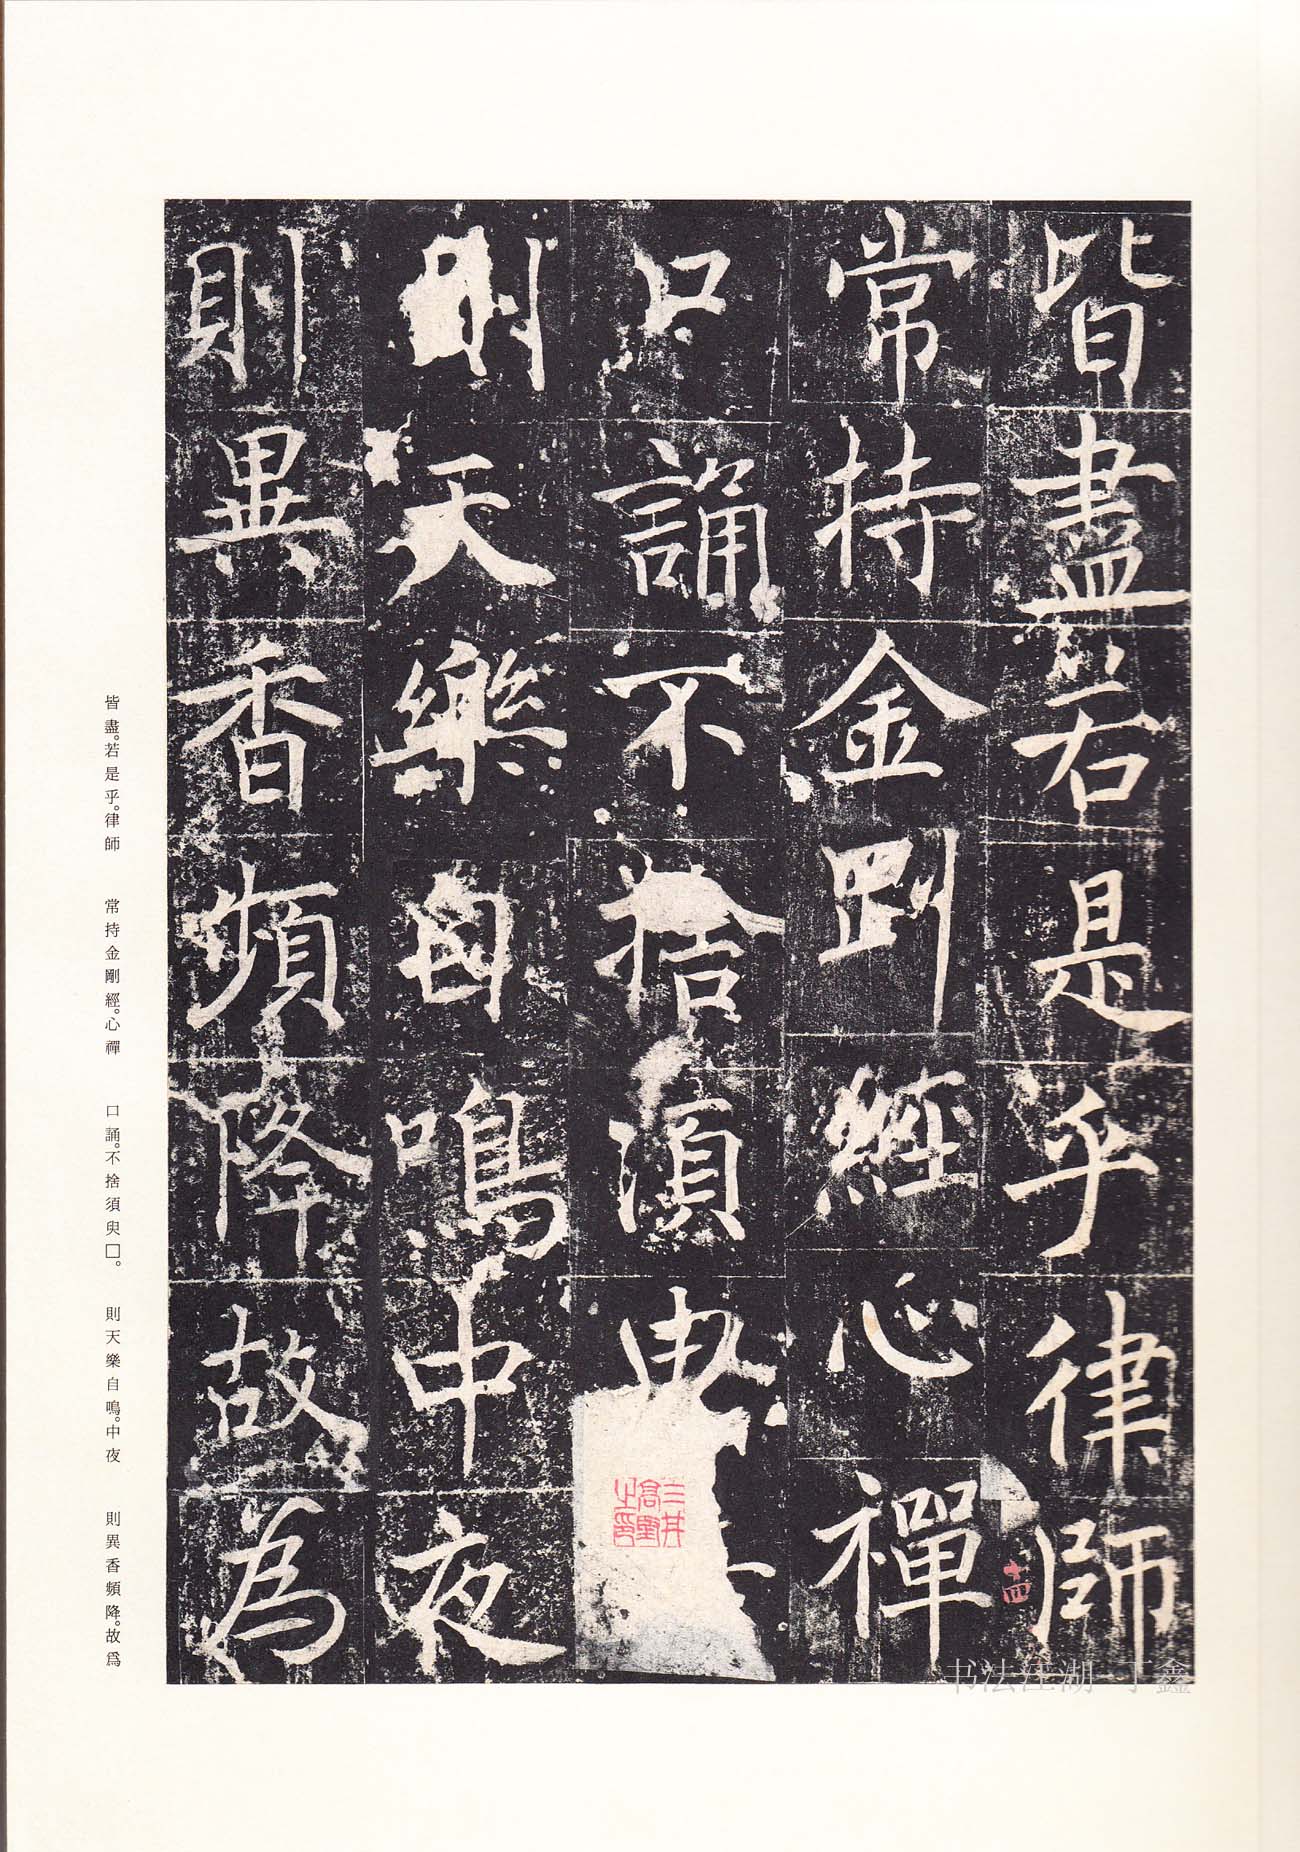 皆盡若是乎律師
常持金剛經心禪
口誦不捨須臾
則天樂自鳴中夜
則異香頻降故為
三井高堅之印
皆盡。若是乎。律師
常持金剛經。心禪
口誦。不捨須臾□。
則天樂自鳴。中夜
則異香頻降。故爲
书法江湖 丁鑫